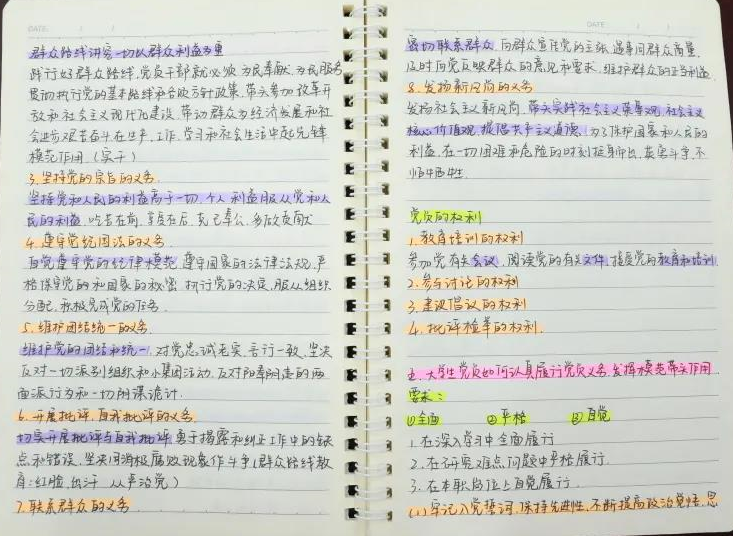 DATE
群众路线讲究一切以群众利益为重
践行好群众路线,党员干部就必须为民奉献、为民服务
贯彻执行党的基本路线和各项方针政策,带头参加改革开
放和社会主义现代化建设,带动群众为经济发展和社
会进步艰苦奋斗,在生产、工作、学习和社会生活中起先锋
模范作用(实干)
3.坚持党的宗旨的义务
坚持党和人民的利益高于一切,个人利益服从党和人
民的利益,吃苦在前,享受在后,克己奉公,多做贡献
4.遵守党纪国法的义务
自觉遵守党的纪律模范遵守国家的法律法规,严
格保守党的和国家的秘密,执行党的决定,服从组织
分配,积极完成党的任务
5.维护团结统一的义务
维护党的团结和统一,对党忠诚老实,言行一致,坚决
反对一切派别组织和小集团活动,反对阳奉阴违的两
面派行为和一切阴谋诡计.
6.开展批评、自我批评的义务
切实开展批评与自我批评,勇于揭露和纠正工作中的缺
点和错误,坚决同消极腐败现象作斗争(群众路线教
育:红脸、出汗 从严治党)
7.联系群众的义务
DATE
密切联系群众,向群众宣传党的主张,遇事同群众商量,
及时向党反映群众的意见和要求,维护群众的正当利益
8.发扬新风尚的义务
发扬社会主义新风尚,带头实践社会主义荣辱观,社会主义
核心价值观,提倡共产主义道德,为了维护国家和人民的
利益,在一切困难和危险的时刻挺身而出,英勇斗争,不
怕牺牲.
党员的权利
1.教育培训的权利
参加党有关会议,阅读党的有关文件,接受党的教育和培训
2.参与讨论的权利
3.建议倡议的权利
4.批评检举的权利.
五.大学生党员如何认真履行党员义务,发挥模范带头作用
要求:
①全面 ②严格 ③自觉
1.在深入学习中全面履行
2.在研究难点问题中严格履行
3.在本职岗位上自觉履行.
(1)牢记入党誓词,保持先进性,不断提高政治觉悟、思